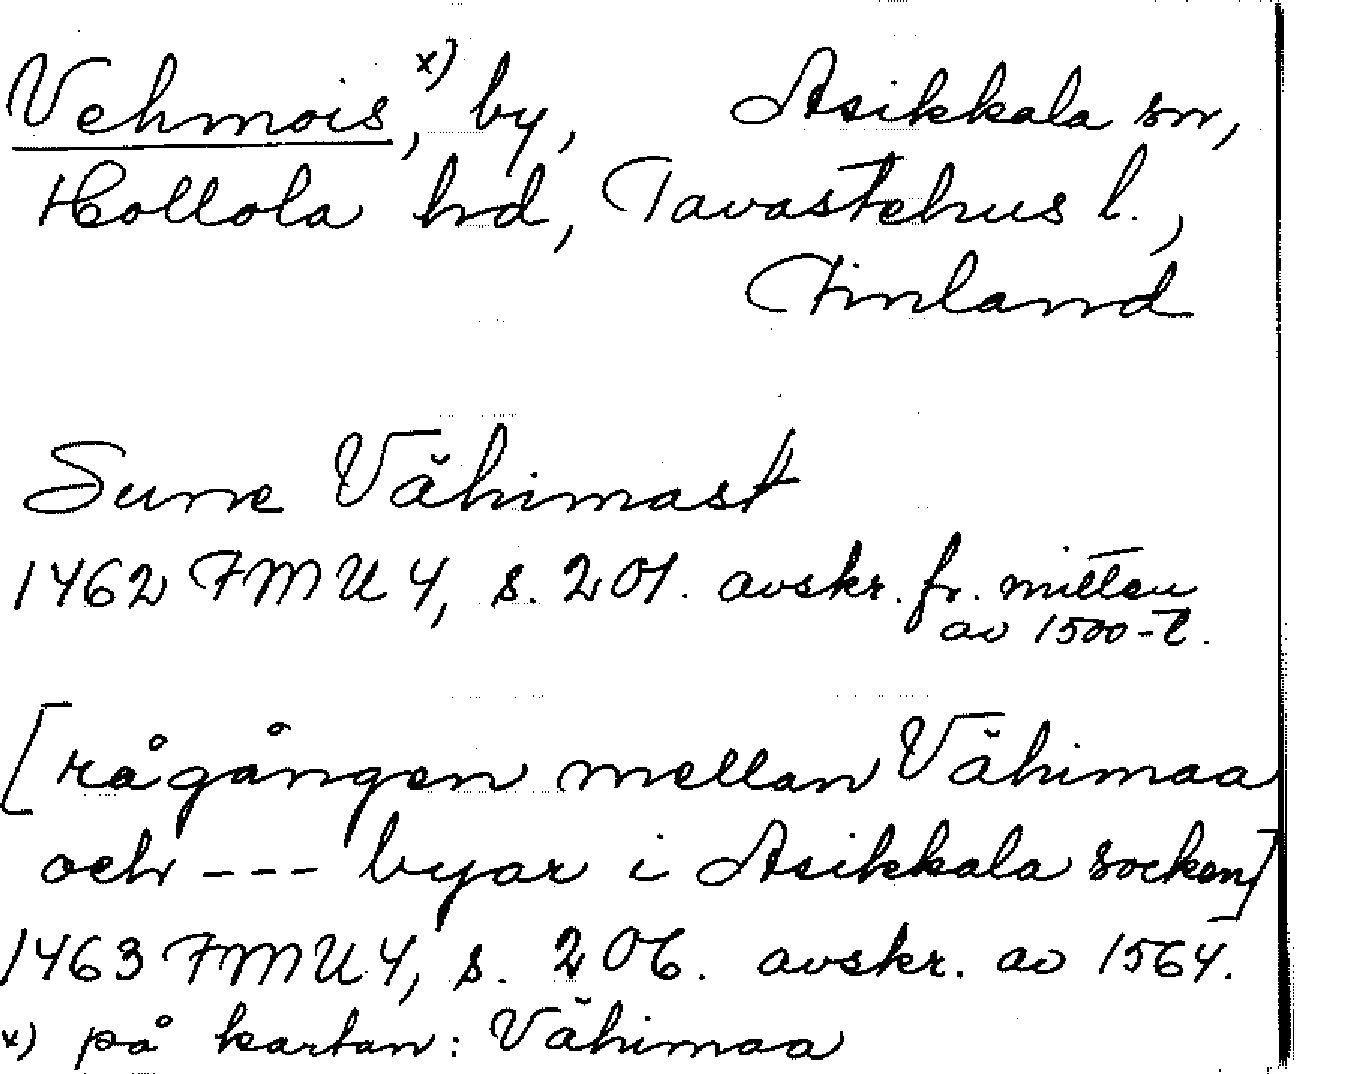 Vehmois, x) by, Asikkala sn,
Hollola hd, Tavastehus l.,
Finland
Sune Vähimast
1462 FMU 4, s. 201. avskr. fr. mitten
av 1500-t.
[rågången mellan Vähimaa
och --- byar i Asikkala socken]
1463 FMU 4, s. 206. avskr. av 1564.
x) på kartan: Vähimaa